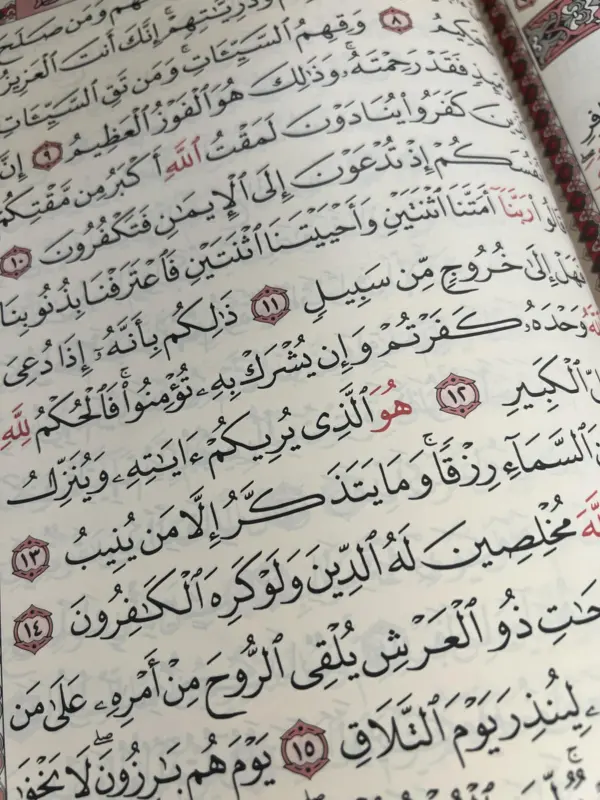 وَذُرِّيَّٰتِهِمْۚ إِنَّكَ أَنتَ ٱلْعَزِيزُ
وَمَن صَلَحَ
ٱلْحَكِيمُ ٨ وَقِهِمُ ٱلسَّيِّـَٔاتِۚ وَمَن تَقِ ٱلسَّيِّـَٔاتِ
فَقَدْ رَحِمْتَهُۥۚ وَذَٰلِكَ هُوَ ٱلْفَوْزُ ٱلْعَظِيمُ ٩ إِنَّ
كَفَرُوا۟ يُنَادَوْنَ لَمَقْتُ ٱللَّهِ أَكْبَرُ مِن مَّقْتِكُمْ
أَنفُسَكُمْ إِذْ تُدْعَوْنَ إِلَى ٱلْإِيمَٰنِ فَتَكْفُرُونَ ١٠
قَالُوا۟ رَبَّنَآ أَمَتَّنَا ٱثْنَتَيْنِ وَأَحْيَيْتَنَا ٱثْنَتَيْنِ فَٱعْتَرَفْنَا بِذُنُوبِنَا
فَهَلْ إِلَىٰ خُرُوجٍ مِّن سَبِيلٍ ١١ ذَٰلِكُم بِأَنَّهُۥٓ إِذَا دُعِىَ
ٱللَّهُ وَحْدَهُۥ كَفَرْتُمْ وَإِن يُشْرَكْ بِهِۦ تُؤْمِنُوا۟ۚ فَٱلْحُكْمُ لِلَّهِ
ٱلْكَبِيرِ ١٢ هُوَ ٱلَّذِى يُرِيكُمْ ءَايَٰتِهِۦ وَيُنَزِّلُ
ٱلسَّمَآءِ رِزْقًاۚ وَمَا يَتَذَكَّرُ إِلَّا مَن يُنِيبُ ١٣
مُخْلِصِينَ لَهُ ٱلدِّينَ وَلَوْ كَرِهَ ٱلْكَٰفِرُونَ ١٤
ذُو ٱلْعَرْشِ يُلْقِى ٱلرُّوحَ مِنْ أَمْرِهِۦ عَلَىٰ مَن
لِيُنذِرَ يَوْمَ ٱلتَّلَاقِ ١٥ يَوْمَ هُم بَٰرِزُونَۖ لَا يَخْفَىٰ